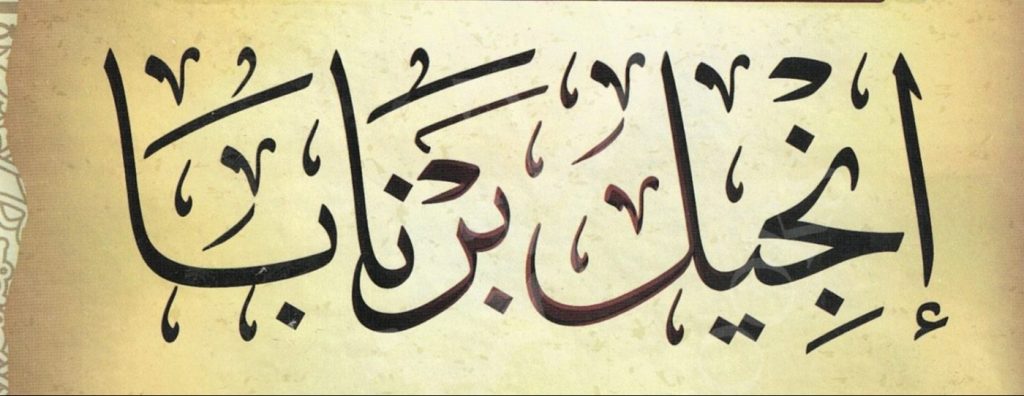 إنجيل برنابا